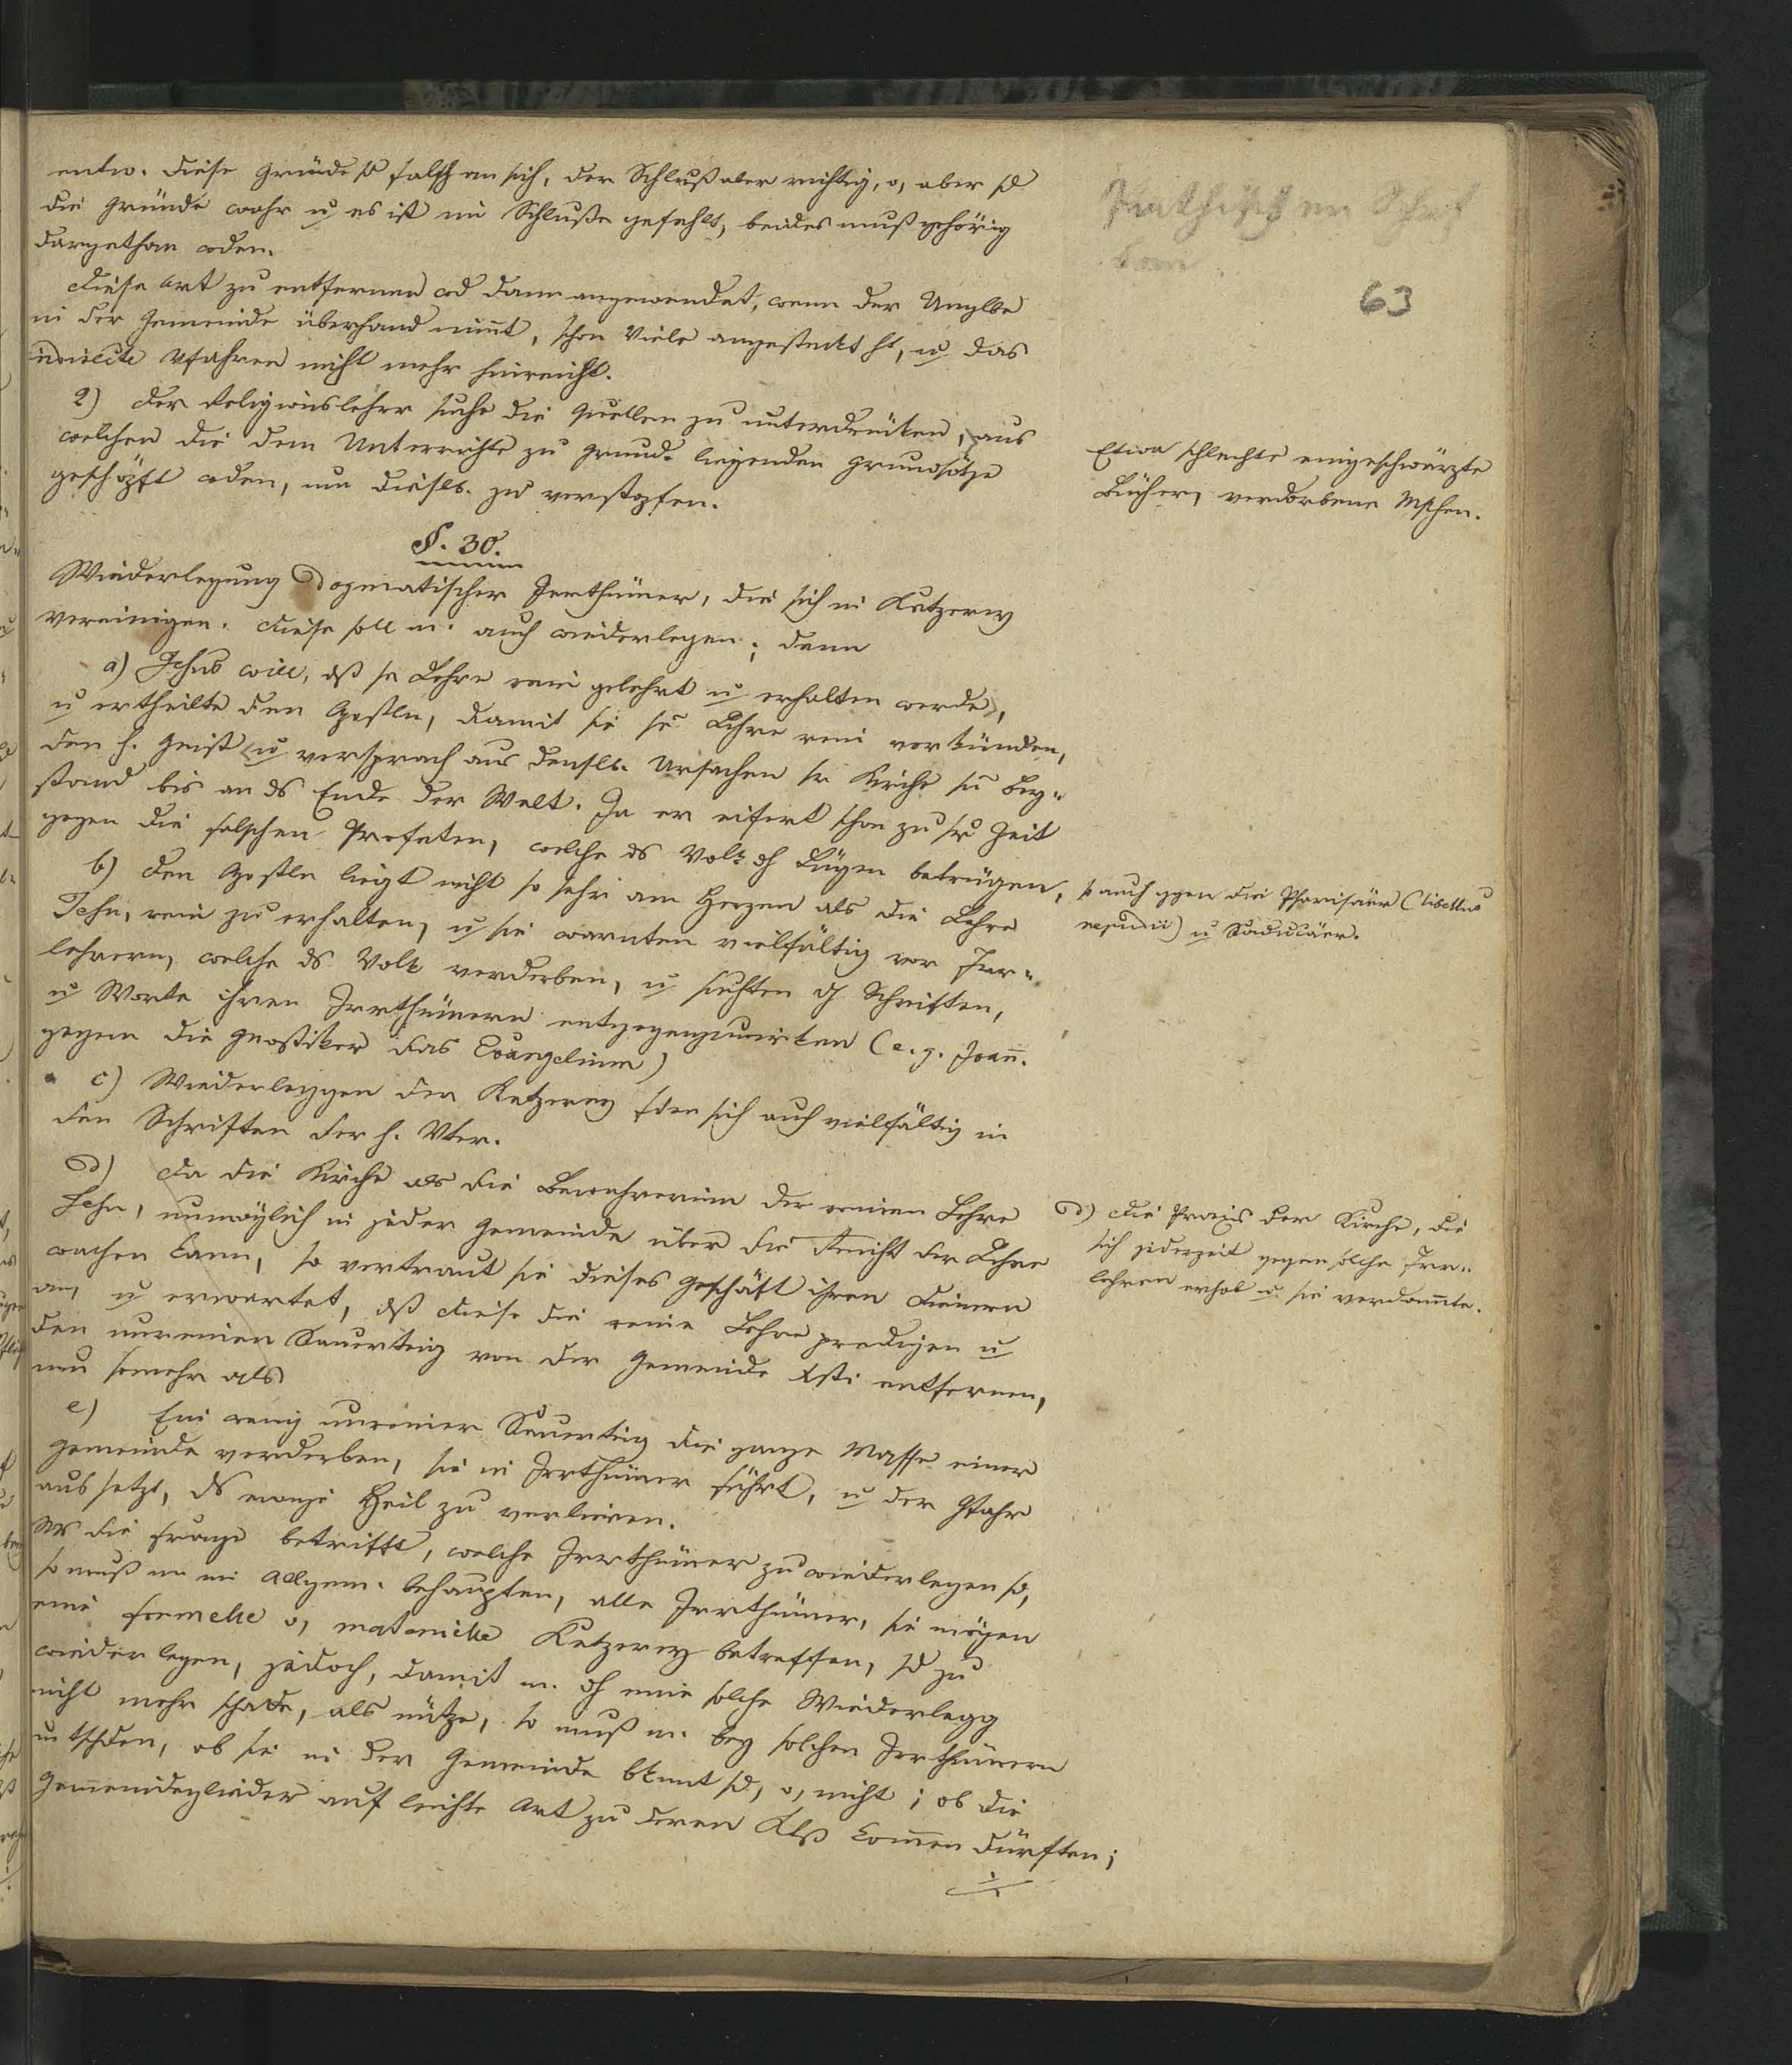 entw. diese Gründe sd falsch an sich, der Schluß aber richtig, o, aber sd
die Gründe wahr u es ist im Schluße gefehlt, beides muß gehörig
dargethan wden.
Diese Art zu entfernen wd dann angewendet, wenn der Unglbe
in der Gemeinde überhand nim̅t, schon Viele angesteckt ht, u das
indirecte Vfahren nicht mehr hinreicht.
2) Der Religionslehrer suche die Quellen zu unterdrücken, aus
welchen die dem Unterrichte zu Grund. liegenden Grundsätze
geschöpft wden, um diesls. zu verstopfen.
Etwa schlechte eingeschwärzte
Bücher, verdorbene Mschen.
63
§. 30.
Wiederlegung dogmatischer Irrthümer, die sich in Ketzerey
vereinigen. Diese soll m. auch wiederlegen; denn
a) Jesus will, dß se Lehre rein gelehrt u erhalten werde,
u ertheilte den Apstln, damit sie se Lehre rein verkünden,
den h. Geist u versprach aus densls. Ursachen sr Kirche sn Bey-
stand bis an ds Ende der Welt. Ja er eifert schon zu sr Zeit
gegen die falschen Profeten, welche ds Volk dh Lügen betrügen,
so auch ggen die Pharisäer (libellus
repudii) u Saducäer.
b) Den Apstln liegt nicht so sehr am Herzen als die Lehre
Jesu, rein zu erhalten, u sie warnten vielfältig vor Irr-
lehrern, welche ds Volk verderben, u suchten dh Schriften,
u Worte ihren Irrthümern entgegenzuwirken (e. g. Joan̅.
gegen die Gnostiker das Evangelium)
c) Wiederleggen der Ketzerey fden sich auch vielfältig in
den Schriften der h. Vter.
d) Da die Kirche als die Bewahrerinn der reinen Lehre
Jesu, unmöglich in jeder Gemeinde über die Reinht der Lehre
wachen kann, so vertraut sie dieses Geschäft ihren Dienern
an, u erwartet, dß diese die reine Lehre predigen u
den unreinen Sauerteig von der Gemeinde Xsti entfernen,
um somehr als
d) Die Praxis der Kirche, die
sich jederzeit gegen solche Irr-
lehren erhob u sie verdam̅te.
e) Ein wenig unreiner Sauerteig die ganze Masse einer
Gemeinde verderben, sie in Irrthümer führt, u der Gfahr
aussetzt, ds ewige Heil zu verlieren.
Ws die Frage betrifft, welche Irrthümer zu wiederlegen sd,
so muß m im Allgem. behaupten, alle Irrthümer, sie mögen
eine formelle o, materielle Ketzerey betreffen, sd zu
wiederlegen, jedoch, damit m. dh eine solche Wiederlegg
nicht mehr schade, als nütze, so muß m. bey solchen Irrthümern
utschden, ob sie in der Gemeinde bknnt sd, o, nicht; ob die
Gemeindeglieder auf leichte Art zu deren Ktß kom̅en dürften;